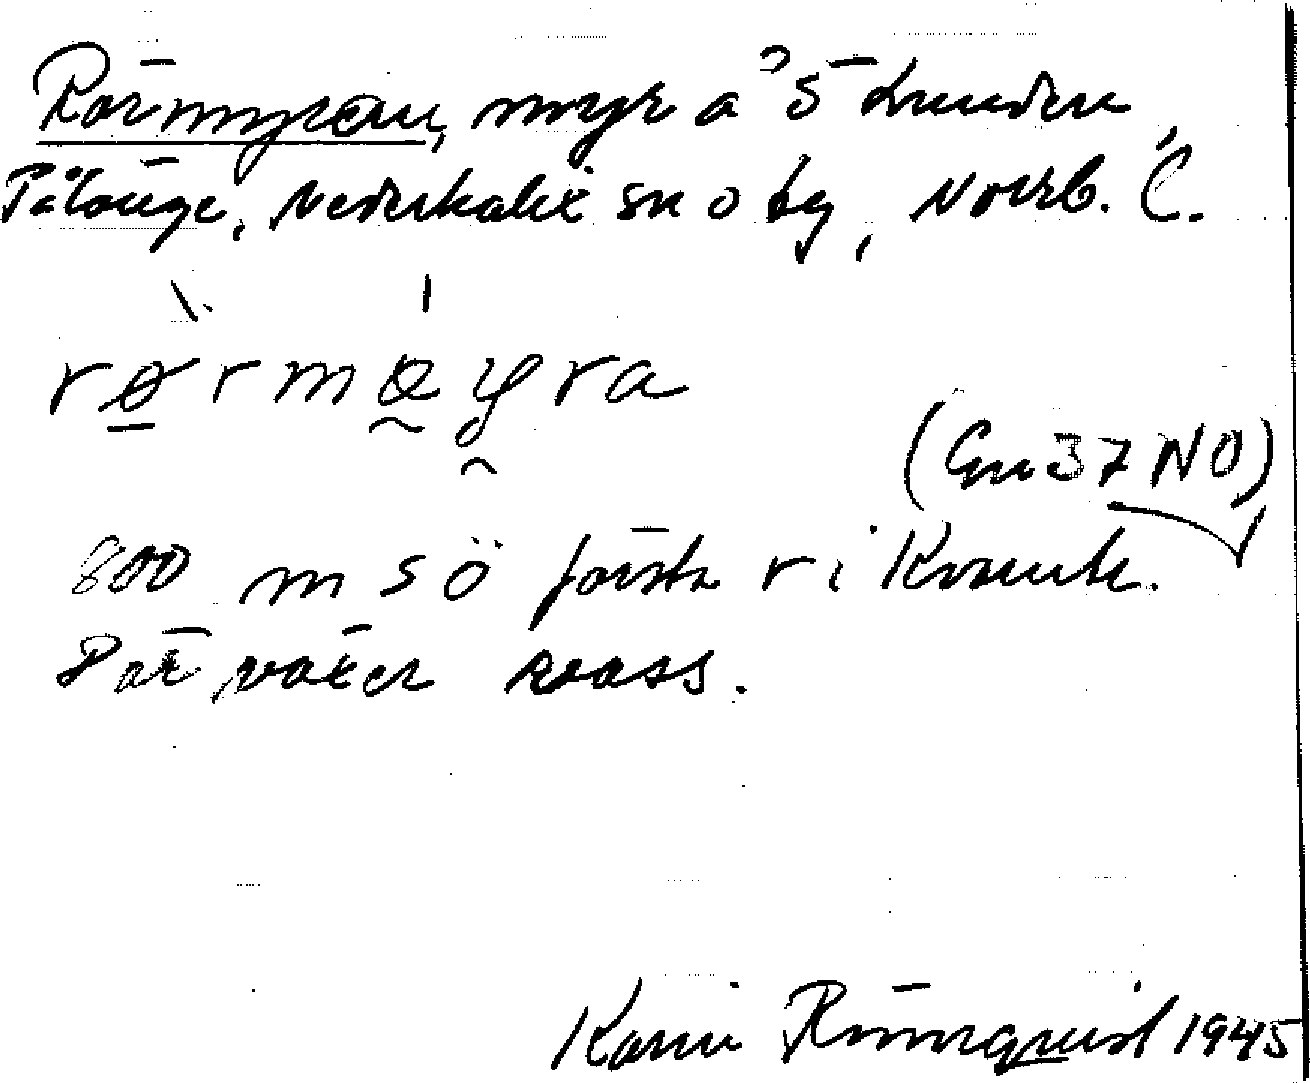 Rörmyran, myr å s Lunden,
Pålänge, Nederkalix sn o tg, Norrb. l.
rørmøyra
(Gen 37 NO)
800 m sö första r i Kronntr.
Där växer vass.
Karin Rönnquist 1945